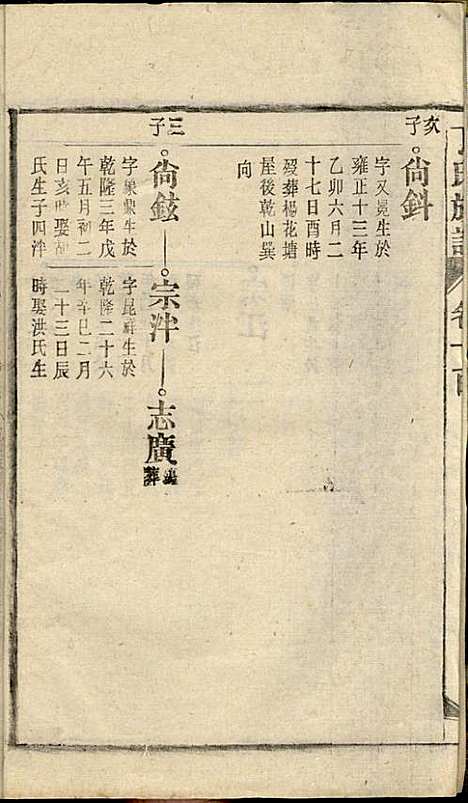 丁氏族譜
次子
尙鈄
字又冕生於
雍正十三年
乙卯六月二
十七日酉時
歿葬楊花塘
屋後乾山巽
向
三子
尙鉉
宗泮
志廣
字象鼎生於
乾隆三年戊
午五月初二
日亥時娶
氏生子四泮
字昆嶭生於
乾隆二十六
年辛巳二月
二十三日辰
時娶洪氏生
葬